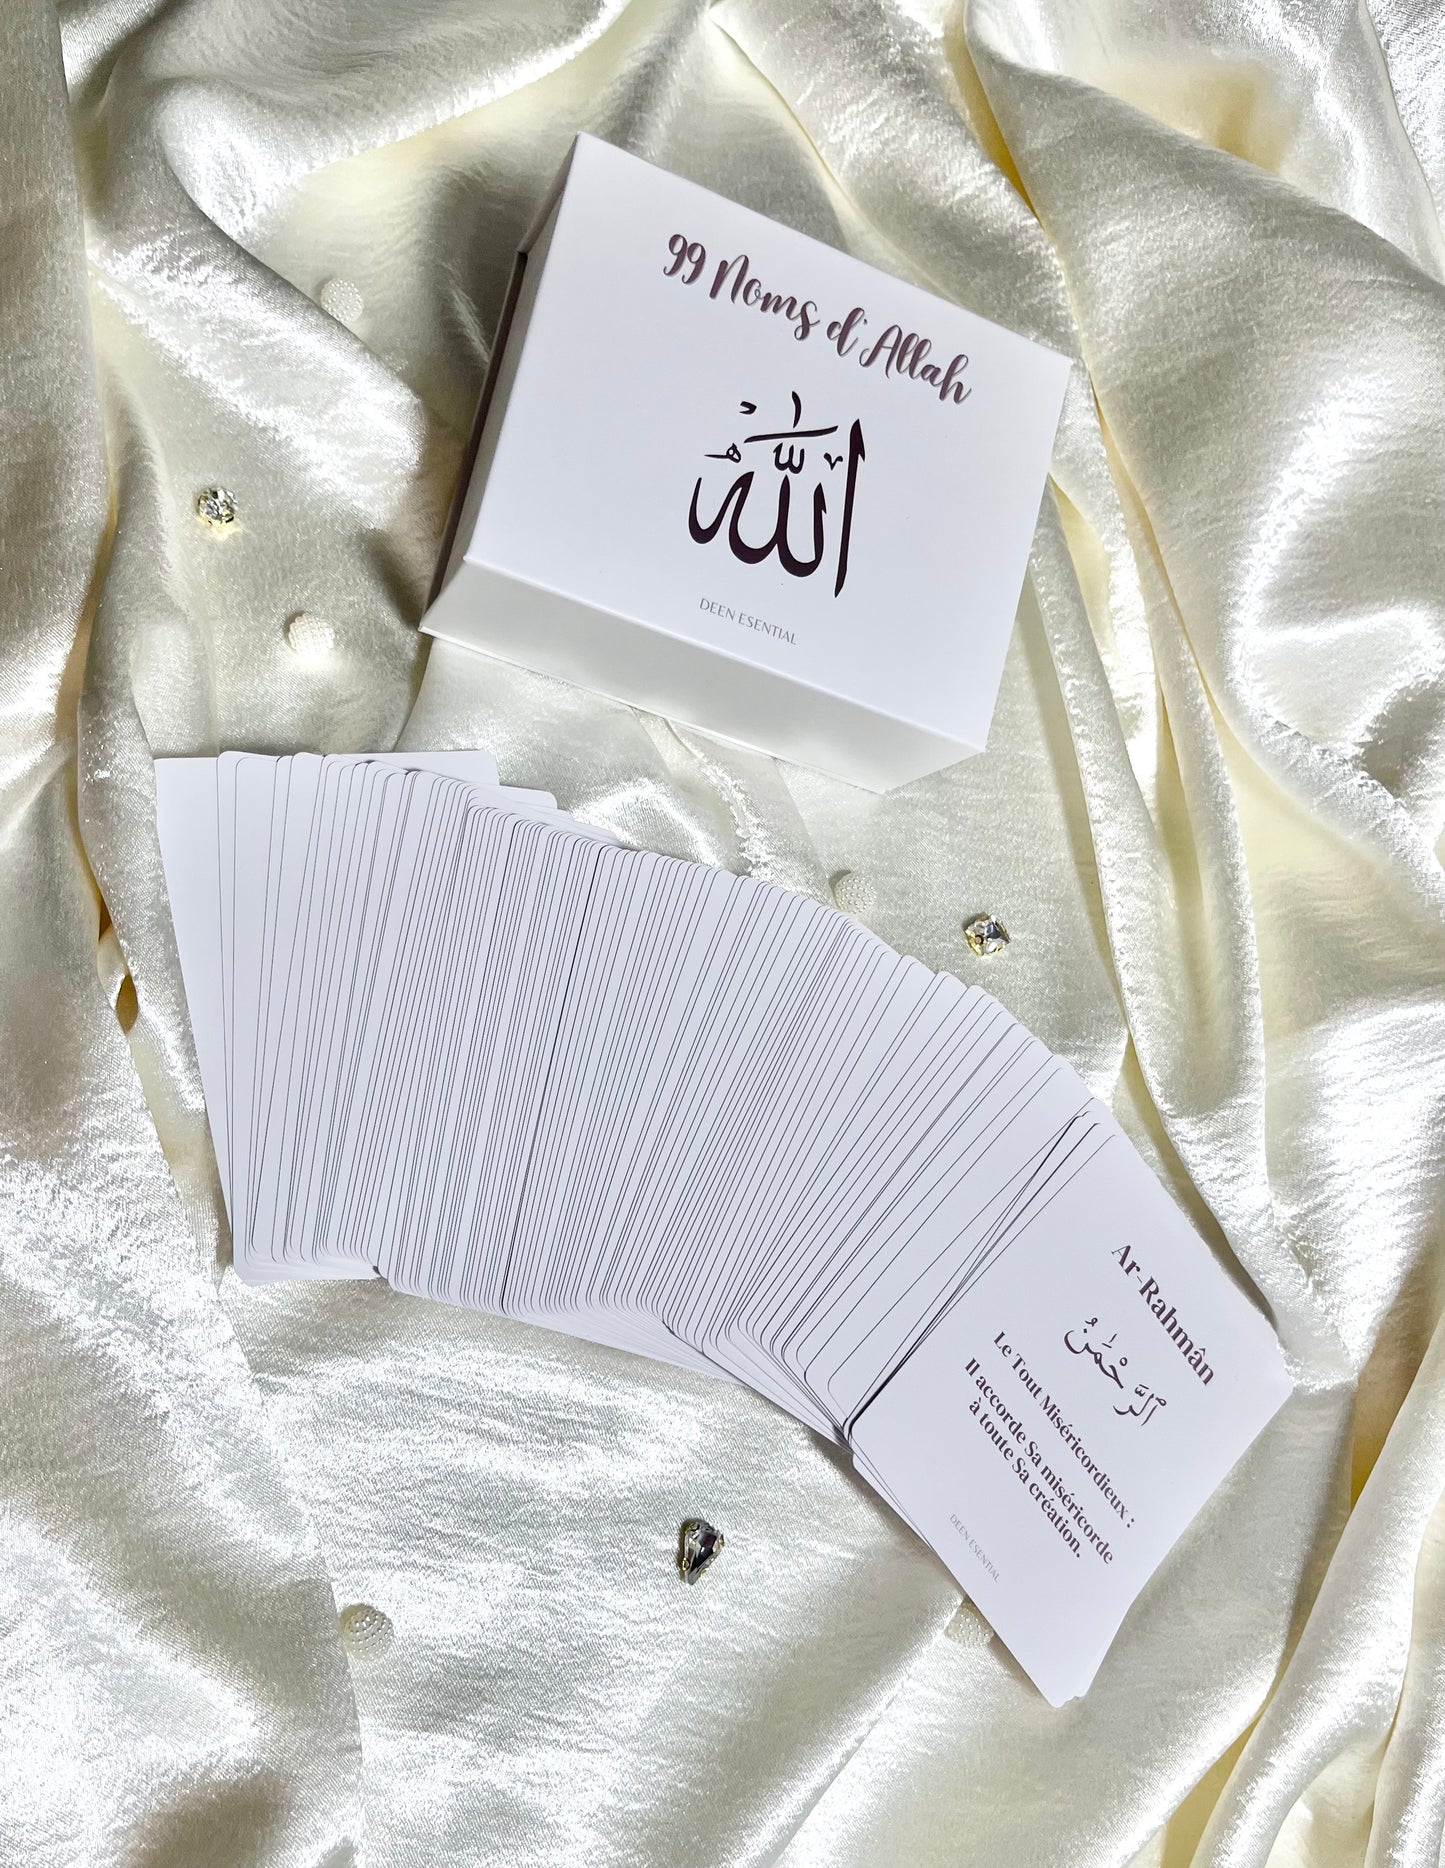 99 Noms d'Allah
اللّٰهُ
DEEN ESENTIAL
Ar-Rahmân
ٱلرَّحْمَٰنُ
Le Tout Miséricordieux :
Il accorde Sa miséricorde
à toute Sa création.
DEEN ESENTIAL